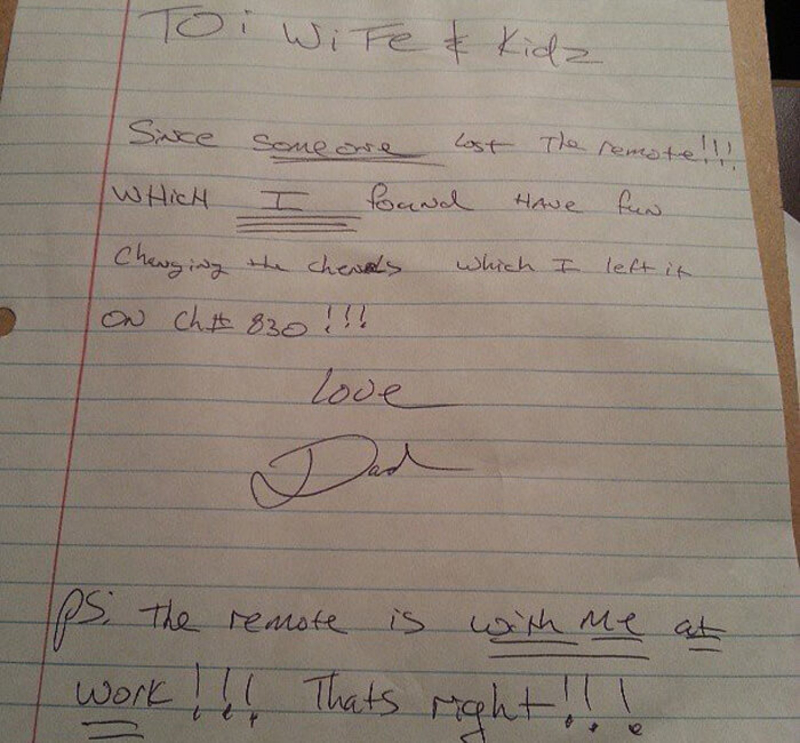 TO: WiFe & Kidz
Since someone lost The remote!!!
WHicH I found HAVE fun
Changing the chenels which I left it
ON Ch# 830!!!
Love
Dad
PS: The remote is with Me at
work!!! Thats right!!!